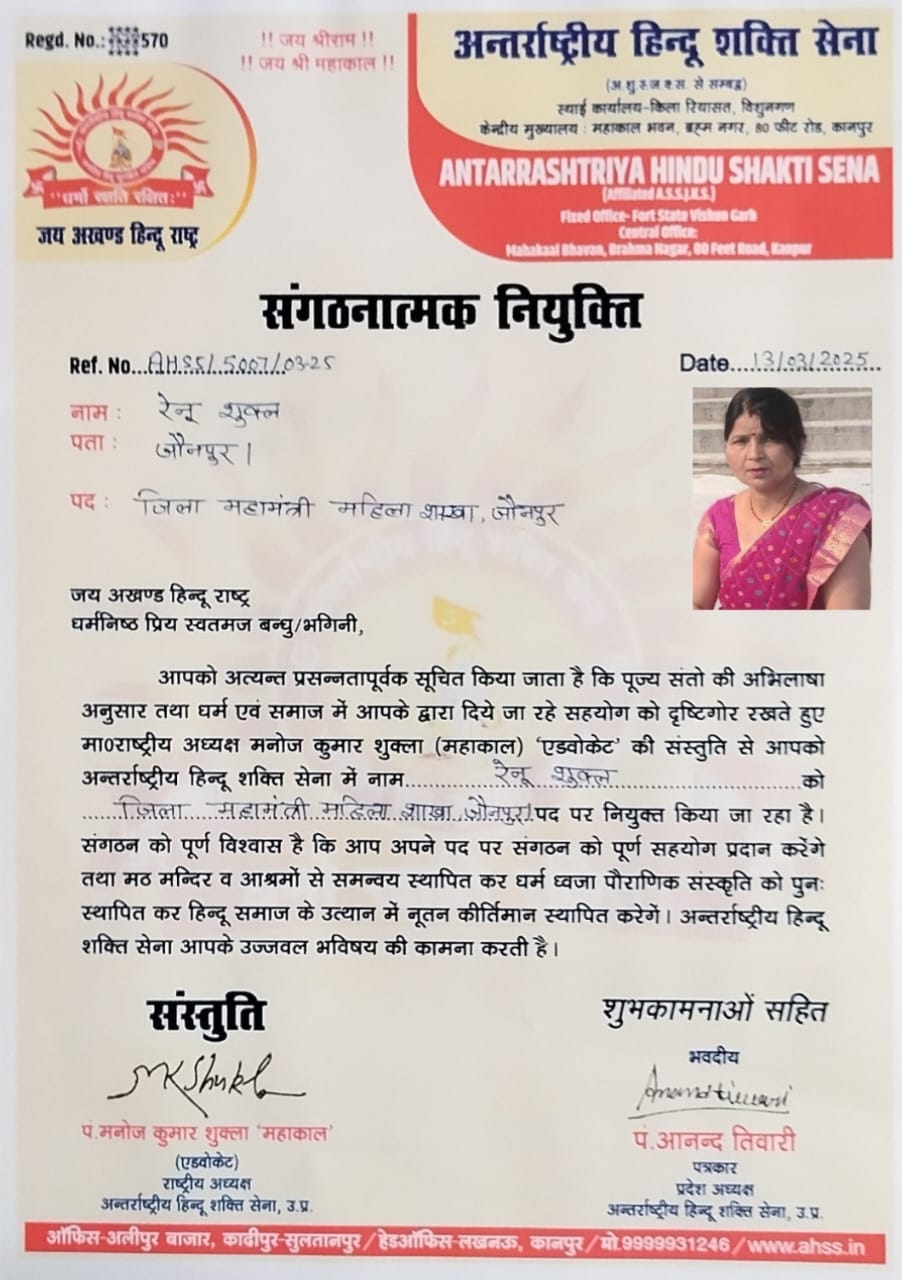 Regd. No.: 570
!! जय श्रीराम !!
!! जय श्री महाकाल !!
अन्तर्राष्ट्रीय हिन्दू शक्ति सेना
(अ.शु.रु.ज.क.स. से सम्बद्व)
स्थाई कार्यालय-किला रियासत, विशुनगण
केन्द्रीय मुख्यालय : महाकाल भवन, ब्रह्म नगर, 80 फीट रोड, कानपुर
ANTARRASHTRIYA HINDU SHAKTI SENA
(Affiliated A.S.S.J.K.S.)
Fixed Office- Fort State Vishun Garh
Central Office:
Mahakaal Bhavan, Brahma Nagar, 80 Feet Road, Kanpur
जय अखण्ड हिन्दू राष्ट्र
संगठनात्मक नियुक्ति
Ref. No...AHSS/5007/03-25
Date....13/03/2025..
नाम : रेनू शुक्ल
पता : जौनपुर।
पद : जिला महामंत्री महिला शाखा, जौनपुर
जय अखण्ड हिन्दू राष्ट्र
धर्मनिष्ठ प्रिय स्वतमज बन्धु/भगिनी,
आपको अत्यन्त प्रसन्नतापूर्वक सूचित किया जाता है कि पूज्य संतो की अभिलाषा
अनुसार तथा धर्म एवं समाज में आपके द्वारा दिये जा रहे सहयोग को दृष्टिगोर रखते हुए
मा0राष्ट्रीय अध्यक्ष मनोज कुमार शुक्ला (महाकाल) 'एडवोकेट' की संस्तुति से आपको
अन्तर्राष्ट्रीय हिन्दू शक्ति सेना में नाम.......रेनू शुक्ल.......को
.....जिला महामंत्री महिला शाखा, जौनपुर।पद पर नियुक्त किया जा रहा है।
संगठन को पूर्ण विश्वास है कि आप अपने पद पर संगठन को पूर्ण सहयोग प्रदान करेंगे
तथा मठ मन्दिर व आश्रमों से समन्वय स्थापित कर धर्म ध्वजा पौराणिक संस्कृति को पुनः
स्थापित कर हिन्दू समाज के उत्थान में नूतन कीर्तिमान स्थापित करेगें। अन्तर्राष्ट्रीय हिन्दू
शक्ति सेना आपके उज्जवल भविषय की कामना करती है।
संस्तुति
शुभकामनाओं सहित
भवदीय
SMKShukla
Anandtiwari
पं.मनोज कुमार शुक्ला 'महाकाल'
(एडवोकेट)
राष्ट्रीय अध्यक्ष
अन्तर्राष्ट्रीय हिन्दू शक्ति सेना, उ.प्र.
पं.आनन्द तिवारी
पत्रकार
प्रदेश अध्यक्ष
अन्तर्राष्ट्रीय हिन्दू शक्ति सेना, उ.प्र.
ऑफिस-अलीपुर बाजार, कादीपुर-सुलतानपुर/हेडऑफिस-लखनऊ, कानपुर/मो.9999931246/www.ahss.in